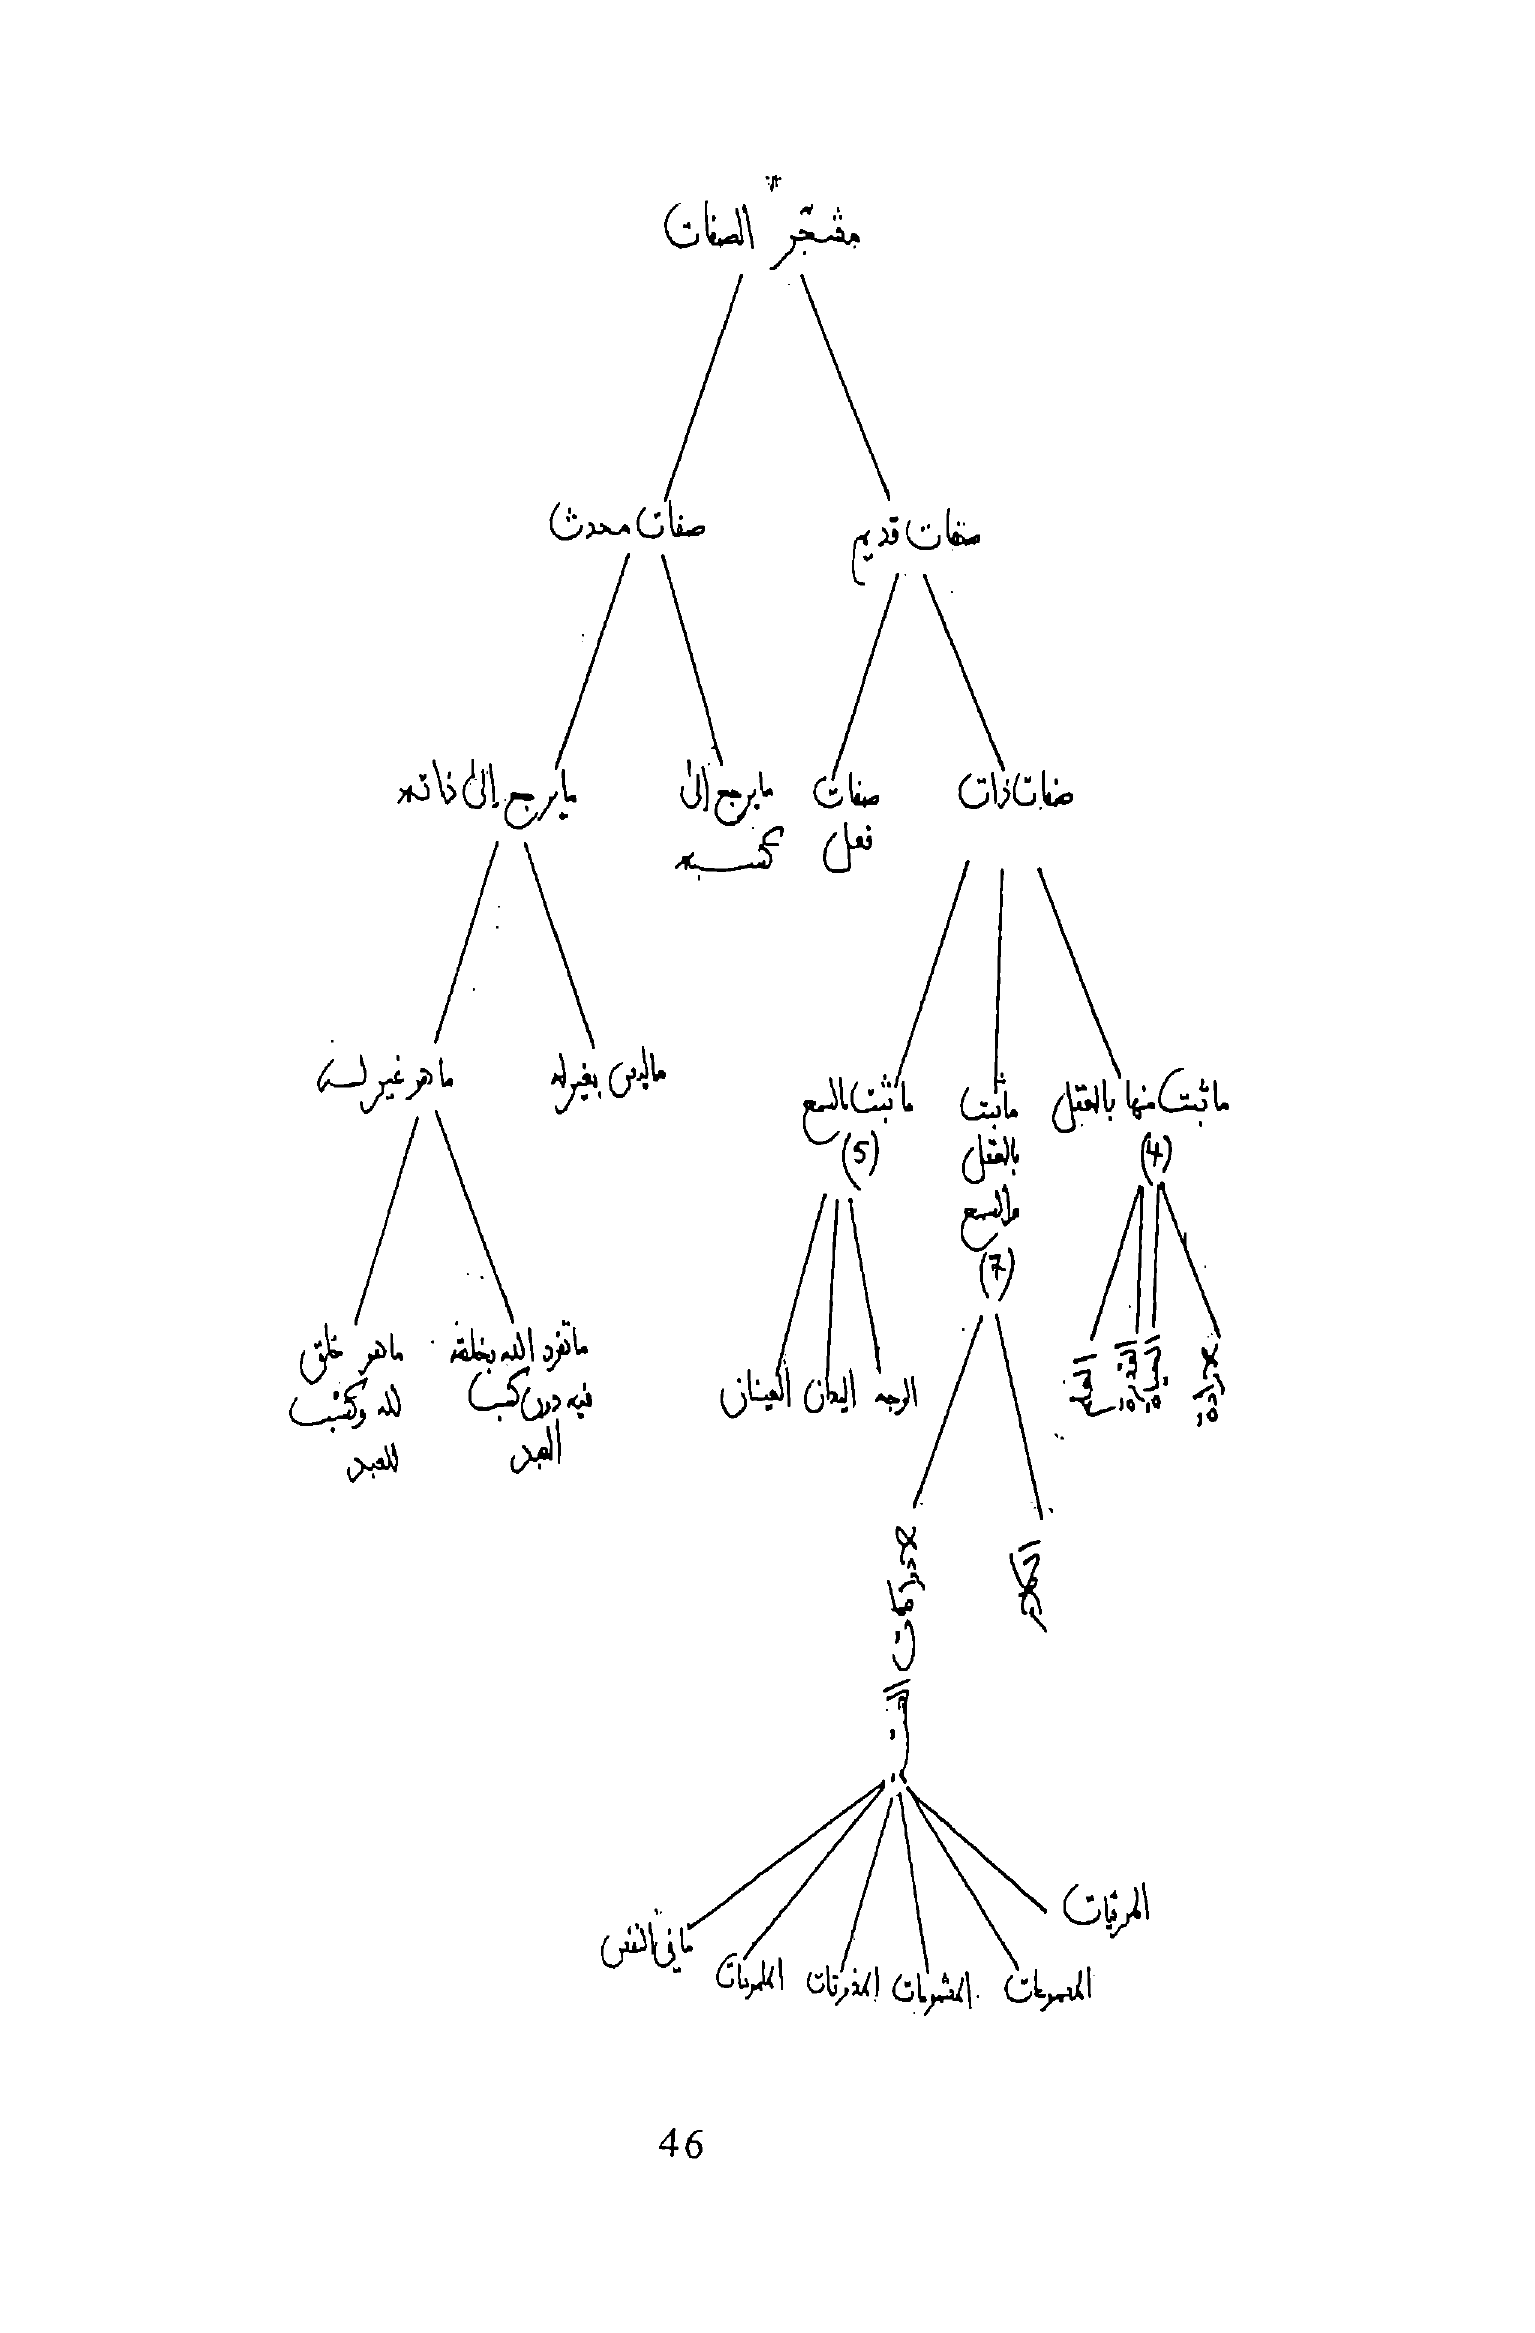 مشجّر الصفات
صفات قديم
صفات محدث
صفات ذات
صفات
فعل
مايرجع إلى
كسبه
مايرجع إلى ذاته
ما ثبت منها بالعقل
(4)
ماثبت
بالعقل
والسمع
(7)
ما ثبت بالسمع
(5)
ماليس بغير له
ما هو غير له
الإرادة
الحياة
القدرة
العلم
الوجه
اليدان
العينان
ماتفرد الله بخلقه
فيه دون كسب
العبد
ماهو خلق
لله وكسب
للعبد
الكلام
الإدراكات الستة
المرئيات
المسموعات
المشمومات
المذوقات
الملموسات
ما في النفس
46